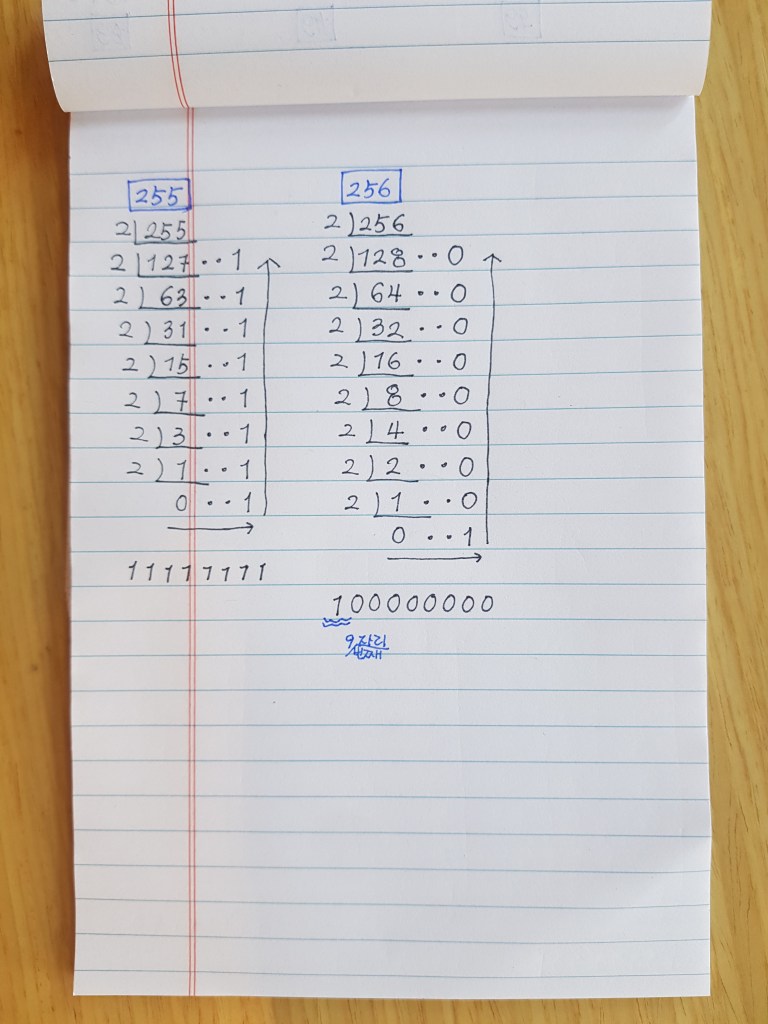 255
2)255
2)127··1
2)63··1
2)31··1
2)15··1
2)7··1
2)3··1
2)1··1
0··1
11111111
256
2)256
2)128··0
2)64··0
2)32··0
2)16··0
2)8··0
2)4··0
2)2··0
2)1··0
0··1
100000000